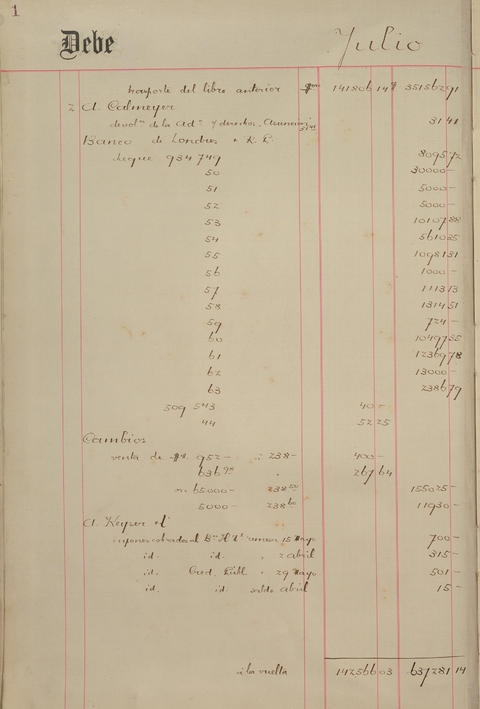 1
Debe Julio
trasporte del libro anterior 141806 14 351562 91
2 A. Calmeyer
devol de la Ad y derechos, Asuncion 31 41
Banco de Londres R. P.
cheque 934749 8095 72
50 30000 -
51 5000 -
52 5000 -
53 10107 88
54 5610 35
55 1098 131
56 1000 -
57 1113 13
58 1314 51
59 724 -
60 10497 55
61 12369 78
62 13000 -
63 2386 79
509 543 40 -
44 52 25
Cambios
venta de 952 - a 238 - 400 -
636 267 64
65000 - 238 50 155025 -
5000 - 238 60 11930 -
A. Keyser
cupones cobrados al Bco 15 Mayo 700 -
id. id. 2 abril 315 -
id. Cred. Publ. 29 Mayo 501 -
id. id. saldo abril 15 -
a la vuelta 142566 03 637281 14